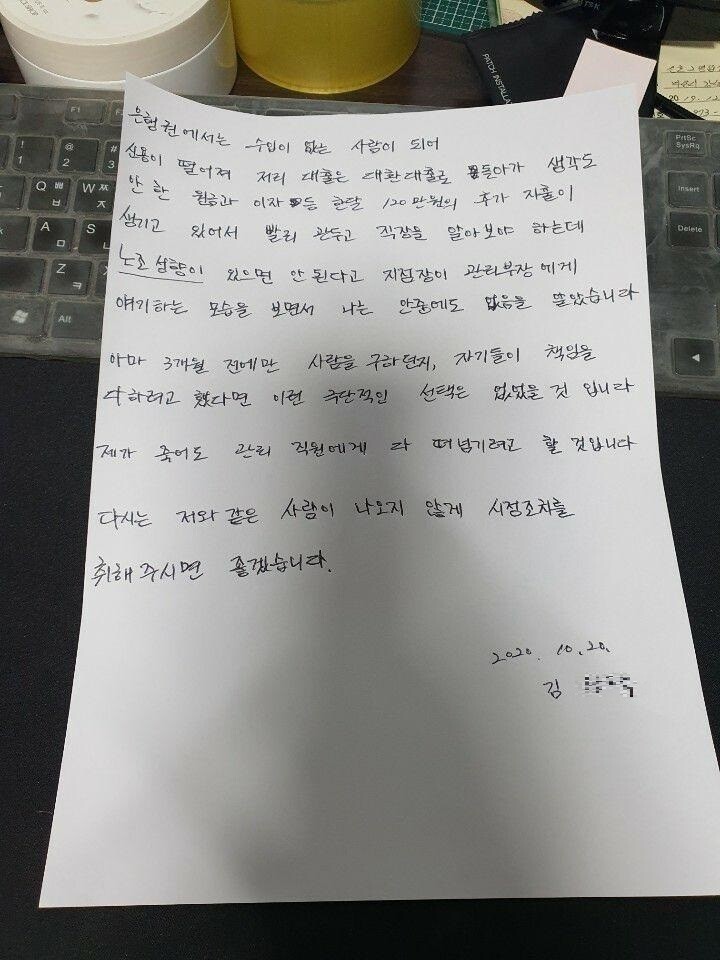 은행권에서는 수입이 없는 사람이 되어
신용이 떨어져 저리 대출은 대환대출로 돌아가 생각도
안 한 원금과 이자 등 한달 120만원의 추가 지출이
생기고 있어서 빨리 관두고 직장을 알아보야 하는데
노조 성향이 있으면 안 된다고 지점장이 관리부장에게
얘기하는 모습을 보면서 나는 안중에도 없음을 알았습니다
아마 3개월 전에만 사람을 구하던지, 자기들이 책임을
다하려고 했다면 이런 극단적인 선택은 없었을 것 입니다
제가 죽어도 관리 직원에게 다 떠넘기려고 할 것입니다
다시는 저와 같은 사람이 나오지 않게 시정조치를
취해주시면 좋겠습니다.
2020. 10. 20.
김
PATCH INSTALLA
F1
F2
! 1
@ 2
# 3
Q ㅃ ㅂ
W ㅉ ㅈ
A ㅁ
S ㄴ
Z ㅋ
Alt
PrtSc
SysRq
Insert
Delete